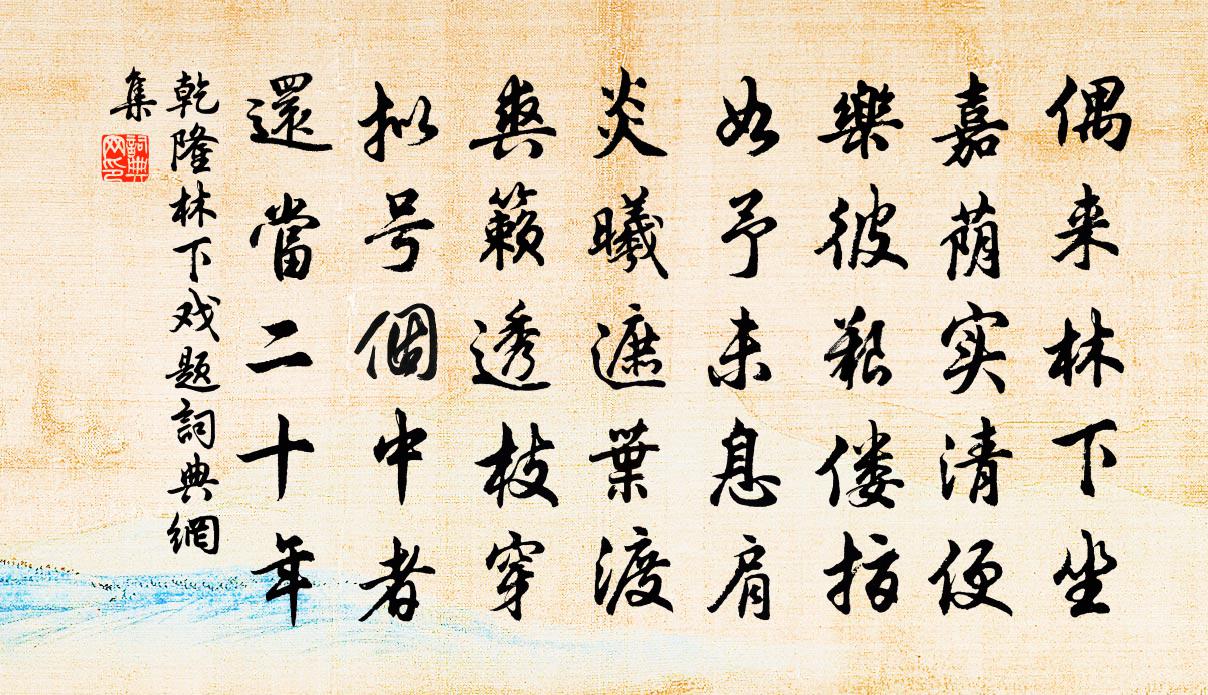 偶来林下坐
嘉荫实清便
樂彼艱偻指
如予未息肩
炎曦遮葉渡
爽籟透枝穿
拟号個中者
還當二十年
乾隆林下戏题詞典網
集
詞典网印